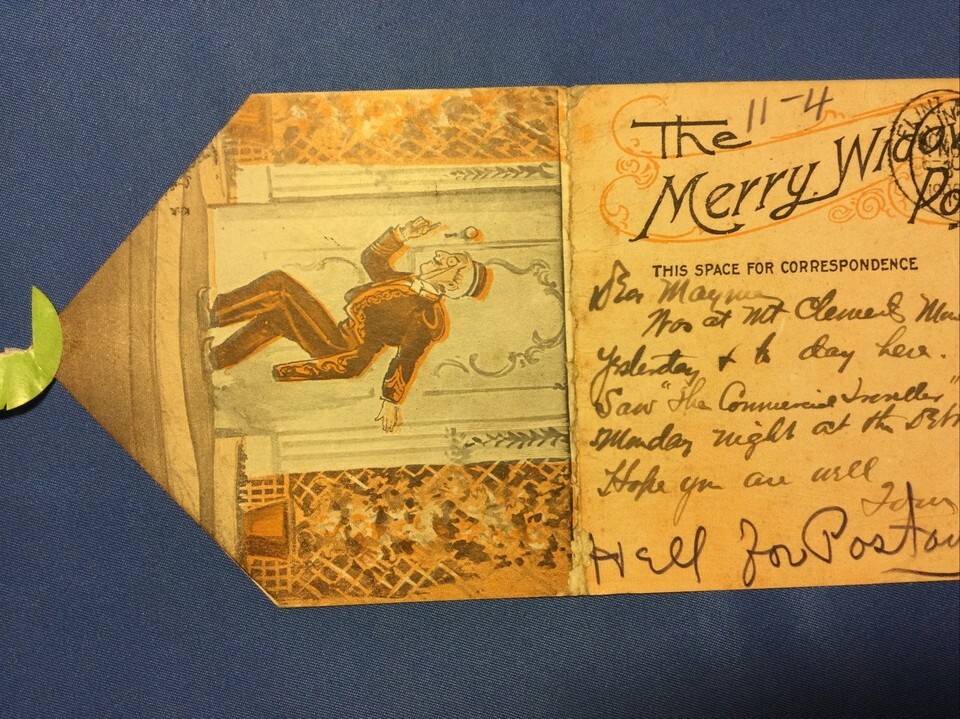 11-4
The
Merry Widow
Po
FLINT
THIS SPACE FOR CORRESPONDENCE
Dear Mayme
Was at Mt Clemens
Yesterday & to day here.
Saw "The Commercial Traveller"
Monday night at the Detr
Hope you are well
Yours
Hell for Poston